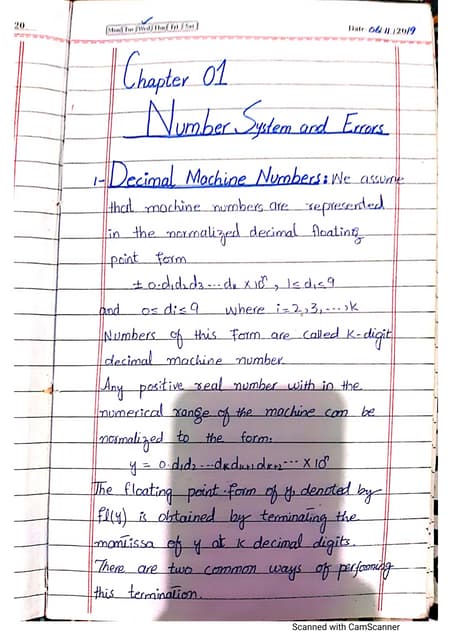 20
Mon Tue Wed Thu Fri Sat
Date 06/11/2019
Chapter 01
Number System and Errors
1- Decimal Machine Numbers: We assume
that machine numbers are represented
in the normalized decimal floating
point form
± 0.d₁d₂d₃...dₖ × 10ⁿ, 1≤d₁≤9
and 0≤di≤9 where i=2,3,...,k
Numbers of this form are called K-digit
decimal machine number.
Any positive real number with in the
numerical range of the machine can be
normalized to the form:
y = 0.d₁d₂...dₖdₖ₊₁dₖ₊₂... × 10ⁿ
The floating point form of y, denoted by
fl(y) is obtained by terminating the
mantissa of y at K decimal digits.
There are two common ways of perfoming
this termination.
Scanned with CamScanner